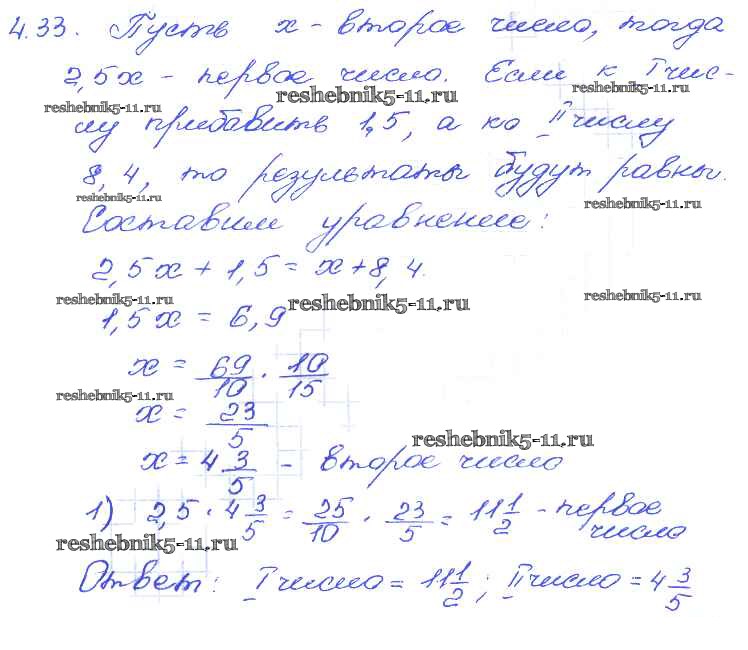 4.33. Пусть x - второе число, тогда
2,5x - первое число. Если к I чис-
reshebnik5-11.ru reshebnik5-11.ru reshebnik5-11.ru
лу прибавить 1,5, а ко II числу
8,4, то результаты будут равны.
reshebnik5-11.ru reshebnik5-11.ru
Составим уравнение:
2,5x + 1,5 = x + 8,4.
reshebnik5-11.ru reshebnik5-11.ru reshebnik5-11.ru
1,5x = 6,9
x = 69/10 · 10/15
reshebnik5-11.ru
x = 23/5
reshebnik5-11.ru
x = 4 3/5 - второе число
1) 2,5 · 4 3/5 = 25/10 · 23/5 = 11 1/2 - первое
число
reshebnik5-11.ru
Ответ: I число = 11 1/2; II число = 4 3/5